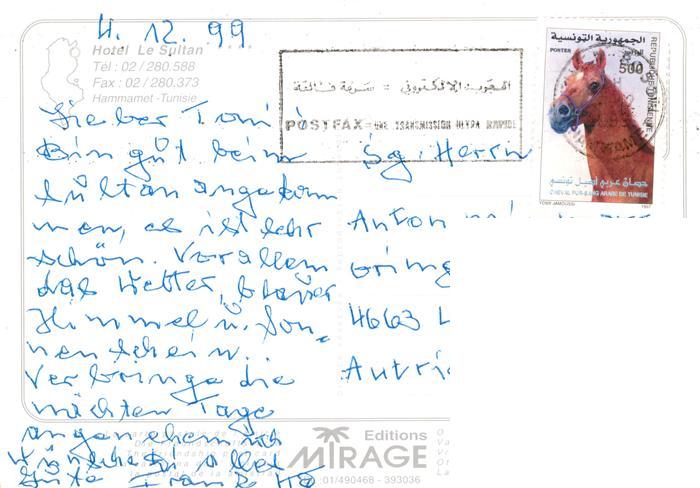 4.12.99
Hotel Le Sultan
Tél : 02 / 280.588
Fax : 02 / 280.373
Hammamet - Tunisie
الجمهورية التونسية
البريد
POSTES
500
REPUBLIQUE TUNISIENNE
حصان عربي أصيل تونسي
CHEVAL PUR-SANG ARABE DE TUNISIE
YOSR JAMOUSSI
1997
البريد الإلكتروني = سرعة فائقة
POSTFAX = UNE TRANSMISSION ULTRA RAPIDE
Lieber Toni!
Bin gut beim
Sultan angekom
men, es ist sehr
schön. Vor allem
das Wetter, blauer
Himmel u. Son-
nenschein.
Verbringe die
nächsten Tage
angenehm u.
wünsche alles
Gute Franz
Sg. Herrn
Anton
4663 L
Autri
Editions
MIRAGE
01/490468 - 393036